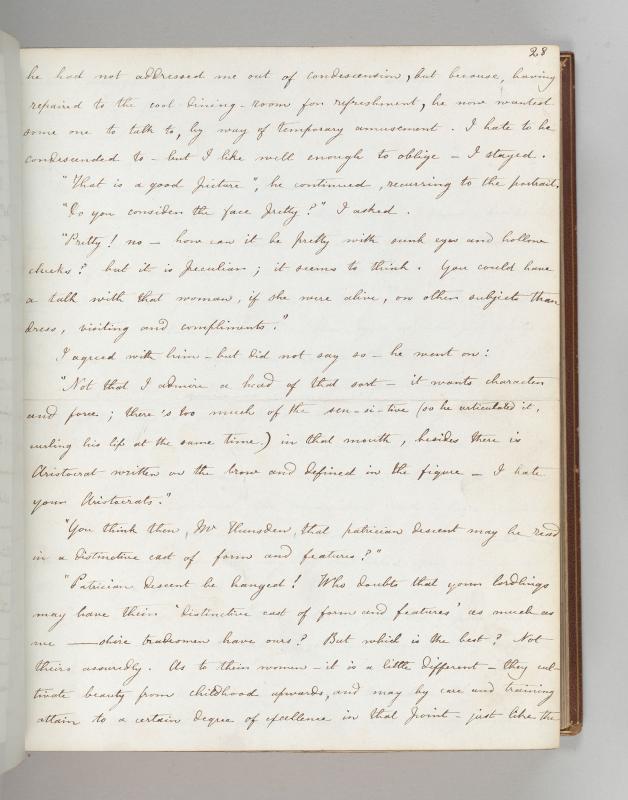 28
he had not addressed me out of condescension, but because, having
repaired to the cool dining-room for refreshment, he now wanted
some one to talk to, by way of temporary amusement. I hate to be
condescended to - but I like well enough to oblige - I stayed.
"That is a good picture", he continued, recurring to the portrait.
"Do you consider the face pretty?" I asked.
"Pretty! no - how can it be pretty with sunk eyes and hollow
cheeks? but it is peculiar; it seems to think. You could have
a talk with that woman, if she were alive, on other subjects than
dress, visiting and compliments."
I agreed with him - but did not say so - he went on:
"Not that I admire a head of that sort - it wants character
and force; there's too much of the sen-si-tive (so he articulated it,
curling his lip at the same time.) in that mouth, besides there is
Aristocrat written on the brow and defined in the figure - I hate
your Aristocrats."
"You think then, Mr Hunsden, that patrician descent may be read
in a distinctive cast of form and features?"
"Patrician descent be hanged! Who doubts that your lordlings
may have their 'distinctive cast of form and features' as much as
we ——shire tradesmen have ours? But which is the best? Not
theirs assuredly. As to their women - it is a little different - they cul-
tivate beauty from childhood upwards, and may by care and training
attain to a certain degree of excellence in that point - just like the